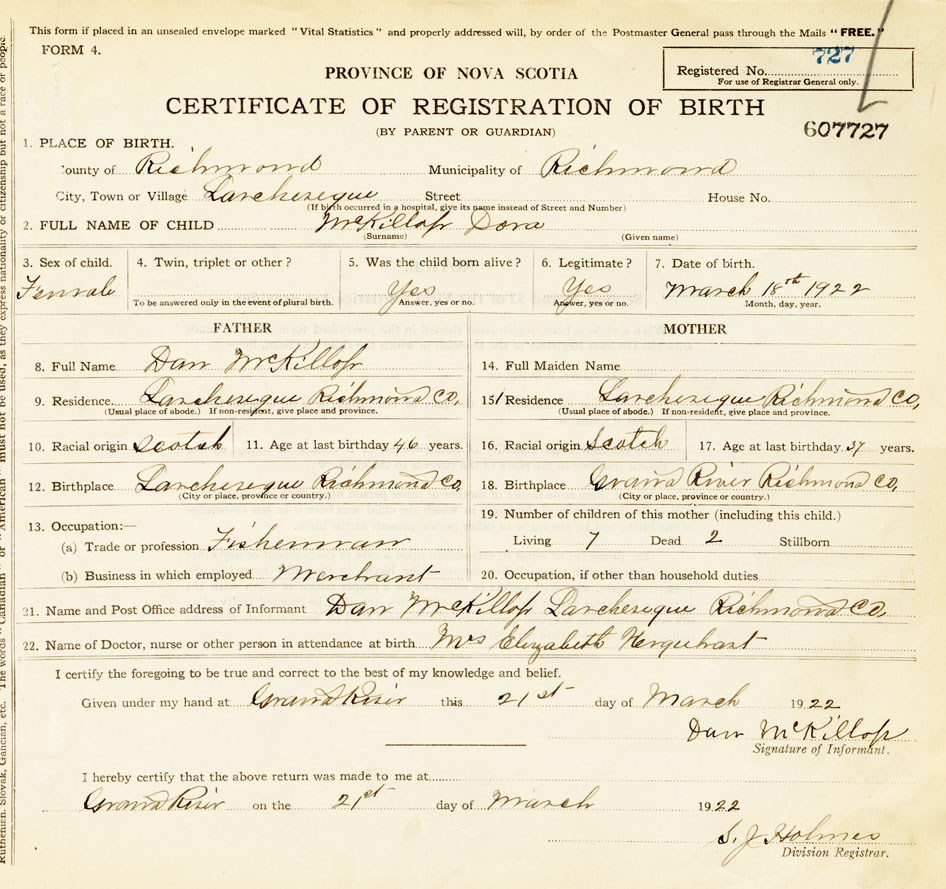 This form if placed in an unsealed envelope marked "Vital Statistics" and properly addressed will, by order of the Postmaster General pass through the Mails "FREE."
FORM 4.
727
Registered No.
For use of Registrar General only.
PROVINCE OF NOVA SCOTIA
CERTIFICATE OF REGISTRATION OF BIRTH
(BY PARENT OR GUARDIAN)
607727
1. PLACE OF BIRTH.
County of Richmond Municipality of Richmond
City, Town or Village Larcheseque Street House No.
(If birth occurred in a hospital, give its name instead of Street and Number)
2. FULL NAME OF CHILD McKillop Dora
(Surname) (Given name)
3. Sex of child. 4. Twin, triplet or other? 5. Was the child born alive? 6. Legitimate? 7. Date of birth.
Female Yes Yes March 18th 1922
To be answered only in the event of plural birth. Answer, yes or no. Answer, yes or no. Month, day, year.
FATHER MOTHER
8. Full Name Dan McKillop 14. Full Maiden Name
9. Residence Larcheseque Richmond Co, 15 Residence Larcheseque Richmond Co,
(Usual place of abode.) If non-resident, give place and province. (Usual place of abode.) If non-resident, give place and province.
10. Racial origin Scotch 11. Age at last birthday 46 years. 16. Racial origin Scotch 17. Age at last birthday 37 years.
12. Birthplace Larcheseque Richmond Co, 18. Birthplace Grand River Richmond Co,
(City or place, province or country.) (City or place, province or country.)
19. Number of children of this mother (including this child.)
13. Occupation:—
(a) Trade or profession Fisherman Living 7 Dead 2 Stillborn
(b) Business in which employed Merchant 20. Occupation, if other than household duties
21. Name and Post Office address of Informant Dan McKillop Larcheseque Richmond Co,
22. Name of Doctor, nurse or other person in attendance at birth Mrs Elizabeth Herquhart
I certify the foregoing to be true and correct to the best of my knowledge and belief.
Given under my hand at Grand River this 21st day of March 1922
Dan McKillop
Signature of Informant.
I hereby certify that the above return was made to me at
Grand River on the 21st day of March 1922
S. J Holmes
Division Registrar.
Ruthenian, Slovak, Galician, etc. The words "Canadian" or "American" must not be used, as they express nationality or citizenship but not a race or people.